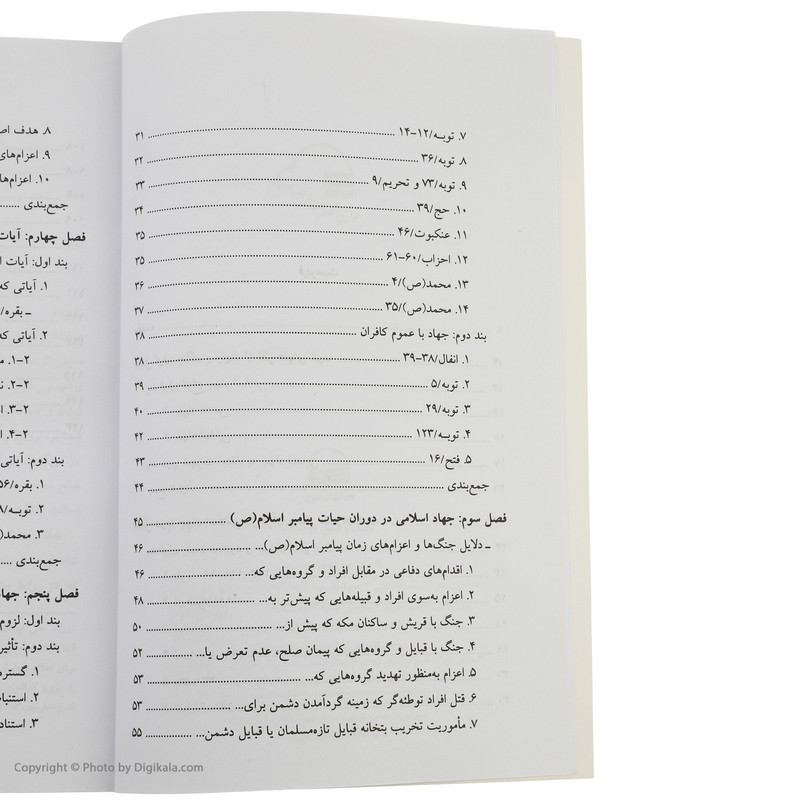 ۷. توبـه/۱۲–۱۴ ........ ۳۱
۸. توبه/۳۶ ........ ۳۲
۹. توبه/۷۳ و تحریم/۹ ........ ۳۳
۱۰. حج/۳۹ ........ ۳۴
۱۱. عنکبوت/۴۶ ........ ۳۵
۱۲. احزاب/۶۰–۶۱ ........ ۳۵
۱۳. محمد(ص)/۴ ........ ۳۶
۱۴. محمد(ص)/۳۵ ........ ۳۷
بند دوم: جهاد با عموم کافران ........ ۳۸
۱. انفال/۳۸–۳۹ ........ ۳۸
۲. توبه/۵ ........ ۳۹
۳. توبه/۲۹ ........ ۴۰
۴. توبـه/۱۲۳ ........ ۴۲
۵. فتح/۱۶ ........ ۴۳
جمع‌بندی ........ ۴۴
فصل سوم: جهاد اسلامی در دوران حیات پیامبر اسلام(ص) ........ ۴۵
ـ دلایل جنگ‌ها و اعزام‌های زمان پیامبر اسلام(ص)... ........ ۴۶
۱. اقدام‌های دفاعی در مقابل افراد و گروه‌هایی که... ........ ۴۶
۲. اعزام به‌سوی افراد و قبیله‌هایی که پیش‌تر به... ........ ۴۸
۳. جنگ با قریش و ساکنان مکه که پیش از... ........ ۵۰
۴. جنگ با قبایل و گروه‌هایی که پیمان صلح، عدم تعرض یا... ........ ۵۲
۵. اعزام به‌منظور تهدید گروه‌هایی که... ........ ۵۳
۶. قتل افراد توطئه‌گر که زمینه گردآمدن دشمن برای... ........ ۵۳
۷. مأموریت تخریب بتخانه قبایل تازه‌مسلمان یا قبایل دشمن... ........ ۵۵
۸. هدف
۹. اعزام‌های
۱۰.
جمع‌بندی ........
فصل چهارم: آیات
بند اول: آیات
۱. آیاتی که
ـ بقره/
۲. آیاتی که
۲–۱.
۲–۲.
۲–۳.
۲–۴.
بند دوم: آیاتی
۱. بقره/
۲. توبـه/
۳. محمد(
جمع‌بندی ........
فصل پنجم:
بند اول: لزوم
بند دوم:
۱.
۲.
۳.
Copyright © Photo by Digikala.com